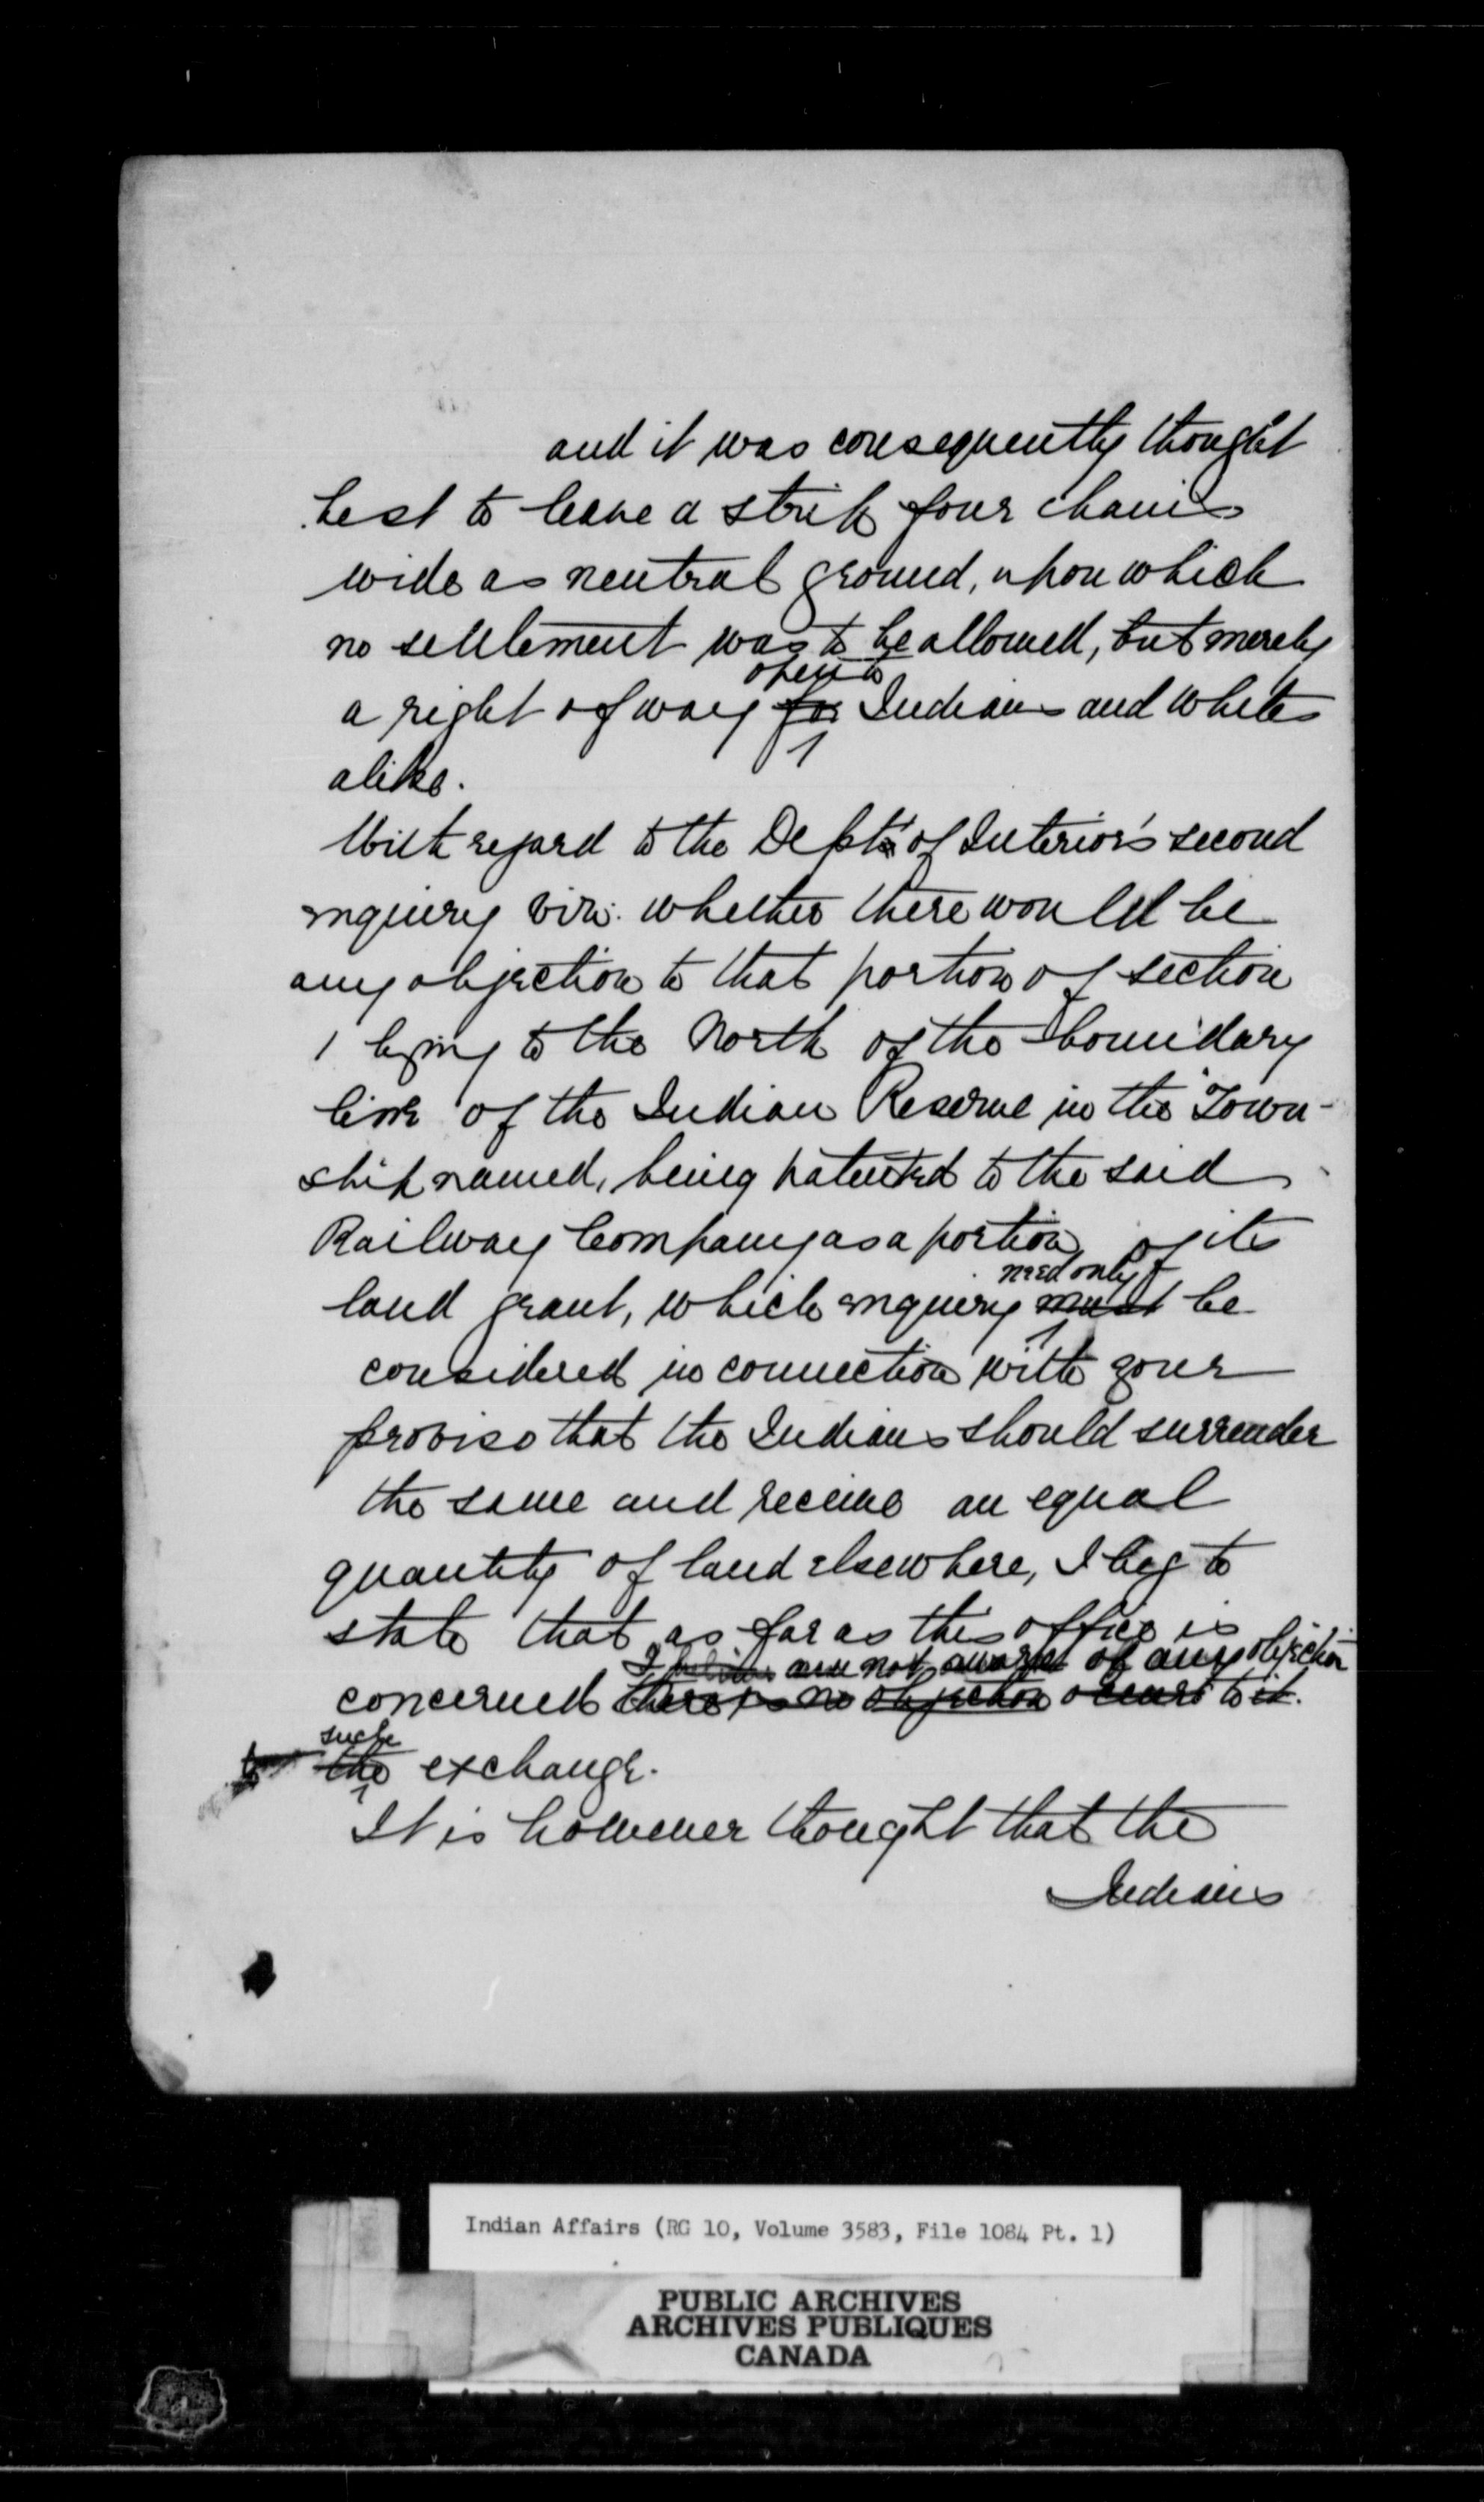 and it was consequently thought
best to leave a strip four chains
wide as neutral ground, upon which
no settlement was to be allowed, but merely
open to
a right of way for Indians and Whites
alike.
With regard to the Dept. of Interior's second
inquiry viz: whether there would be
any objection to that portion of section
1 lying to the North of the boundary
line of the Indian Reserve in the Town-
ship named, being patented to the said
Railway Company as a portion of its
need only
land grant, which inquiry must be
considered in connection with your
proviso that the Indians should surrender
the same and receive an equal
quantity of land elsewhere, I beg to
state that as far as this office is
I am not aware of any objection
concerned there is no objection occurs to it.
such
to the exchange.
It is however thought that the
Indians
Indian Affairs (RG 10, Volume 3583, File 1084 Pt. 1)
PUBLIC ARCHIVES
ARCHIVES PUBLIQUES
CANADA